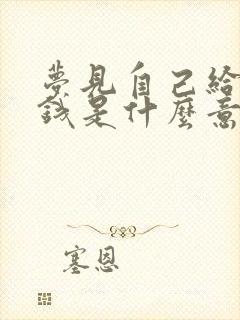 夢見自己給
錢是什麼意
塞恩